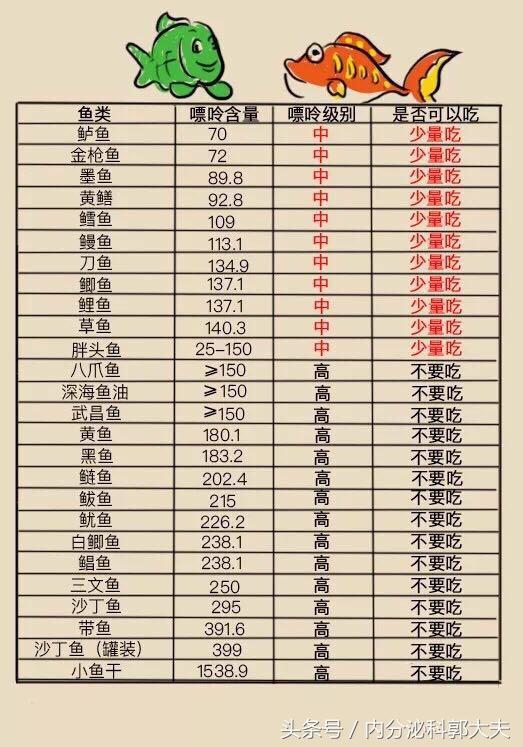 鱼类 嘌呤含量 嘌呤级别 是否可以吃
鲈鱼 70 中 少量吃
金枪鱼 72 中 少量吃
墨鱼 89.8 中 少量吃
黄鳝 92.8 中 少量吃
鳕鱼 109 中 少量吃
鳗鱼 113.1 中 少量吃
刀鱼 134.9 中 少量吃
鲫鱼 137.1 中 少量吃
鲤鱼 137.1 中 少量吃
草鱼 140.3 中 少量吃
胖头鱼 25-150 中 少量吃
八爪鱼 ⩾150 高 不要吃
深海鱼油 ⩾150 高 不要吃
武昌鱼 ⩾150 高 不要吃
黄鱼 180.1 高 不要吃
黑鱼 183.2 高 不要吃
鲢鱼 202.4 高 不要吃
鲅鱼 215 高 不要吃
鱿鱼 226.2 高 不要吃
白鲫鱼 238.1 高 不要吃
鲳鱼 238.1 高 不要吃
三文鱼 250 高 不要吃
沙丁鱼 295 高 不要吃
带鱼 391.6 高 不要吃
沙丁鱼（罐装） 399 高 不要吃
小鱼干 1538.9 高 不要吃
头条号 / 内分泌科郭大夫